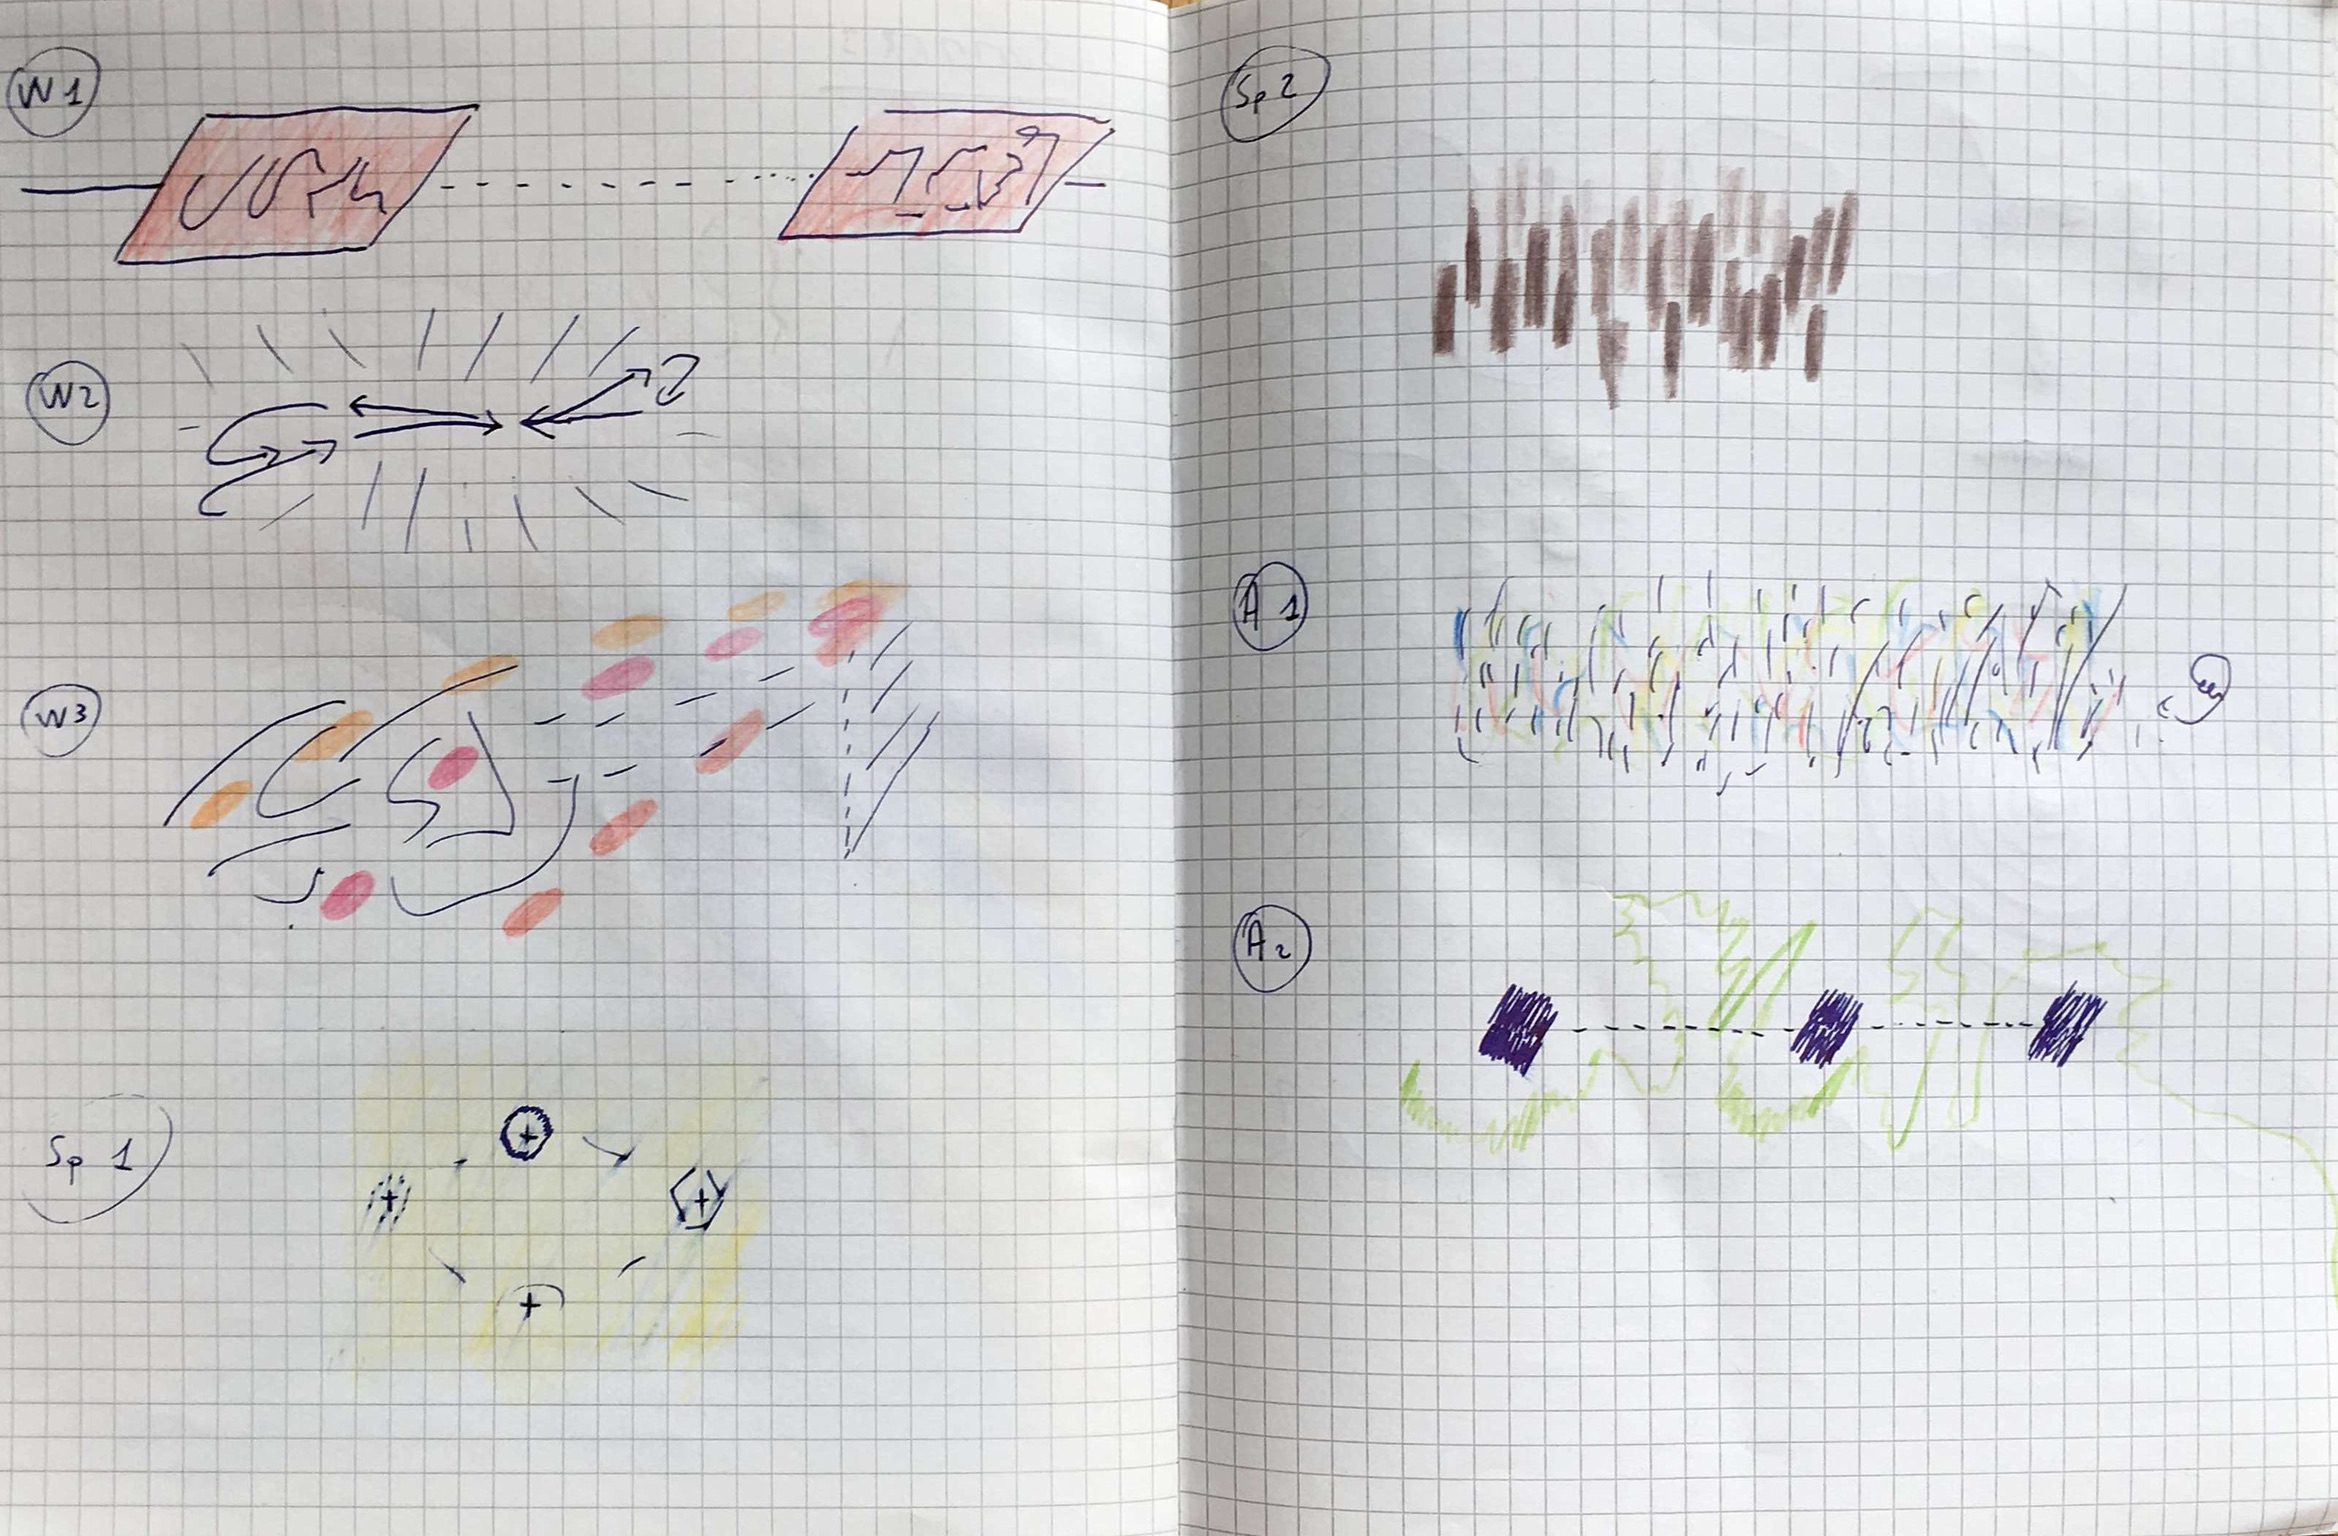 W1
W2
W3
Sp 1
Sp 2
A 1
A 2